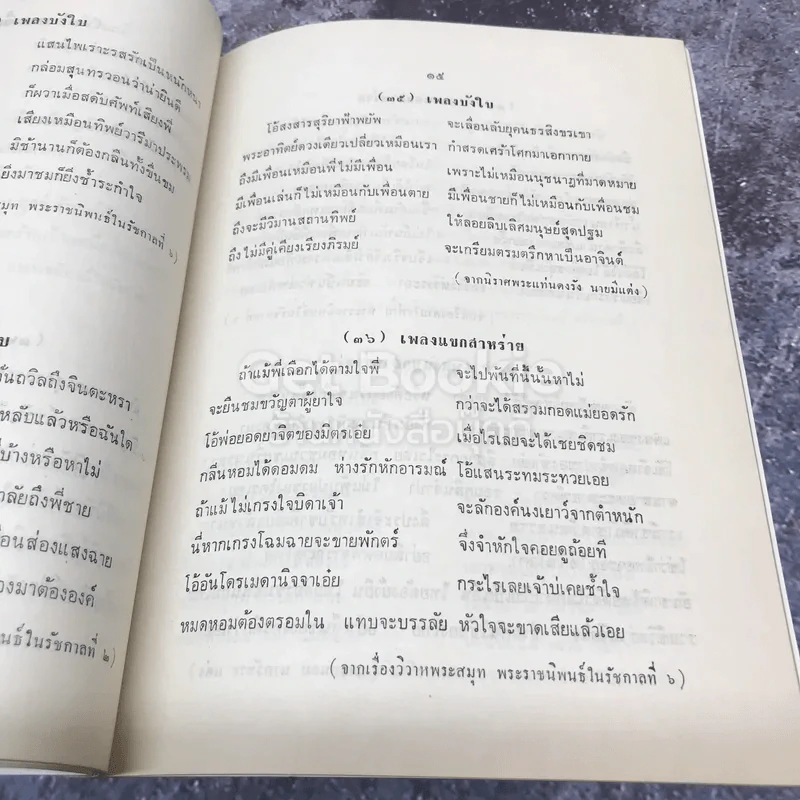 เพลงบังใบ
แสนไพเราะรสรักเป็นหนักหนา
กล่อมสุนทรวอนว่าน่ายินดี
ก็ผวาเมื่อสดับศัพท์เสียงพี่
เสียงเหมือนทิพย์วารีมาประพรม
มิช้านานก็ต้องกลืนทั้งขื่นขม
มาชมก็ยิ่งช้ำระกำใจ
สมุท พระราชนิพนธ์ในรัชกาลที่ ๖)
ถวิลถึงจินตะหรา
หลับแล้วหรือฉันใด
บ้างหรือหาไม่
ถึงพี่ชาย
ส่องแสงฉาย
มาต้ององค์
ในรัชกาลที่ ๒)
๑๕
(๓๕) เพลงบังใบ
โอ้สงสารสุริยาฟ้าพยัพ จะเลื่อนลับยุคนธรสิงขรเขา
พระอาทิตย์ดวงเดียวเปลี่ยวเหมือนเรา กำสรดเศร้าโศกมาเอกากาย
ถึงมีเพื่อนเหมือนพี่ไม่มีเพื่อน เพราะไม่เหมือนนุชนาฏที่มาดหมาย
มีเพื่อนเล่นก็ไม่เหมือนกับเพื่อนตาย มีเพื่อนชายก็ไม่เหมือนกับเพื่อนชม
ถึงจะมีวิมานสถานทิพย์ ให้ลอยลิบเลิศมนุษย์สุดปฐม
ถึงไม่มีคู่เคียงเรียงภิรมย์ จะเกรียมตรมตรึกหาเป็นอาจินต์
(จากนิราศพระแท่นดงรัง นายมีแต่ง)
(๓๖) เพลงแขกสาหร่าย
ถ้าแม้พี่เลือกได้ตามใจพี่ จะไปพ้นที่นี้นั้นหาไม่
จะยืนชมขวัญตาผู้ยาใจ กว่าจะได้สรวมกอดแม่ยอดรัก
โอ้พ่อยอดยาจิตของมิตรเอ๋ย เมื่อไรเลยจะได้เชยชิดชม
กลิ่นหอมได้ดอมดม ห่างรักหักอารมณ์ โอ้แสนระทมระทวยเอย
ถ้าแม้ไม่เกรงใจบิดาเจ้า จะลักองค์นงเยาว์จากตำหนัก
นี่หากเกรงโฉมฉายจะขายพักตร์ จึ่งจำหักใจคอยดูถ้อยที
โอ้อันโดรเมดานิจจาเอ๋ย กระไรเลยเจ้าบ่เคยช้ำใจ
หมดหอมต้องตรอมใน แทบจะบรรลัย หัวใจจะขาดเสียแล้วเอย
(จากเรื่องวิวาหพระสมุท พระราชนิพนธ์ในรัชกาลที่ ๖)
Get Bookie